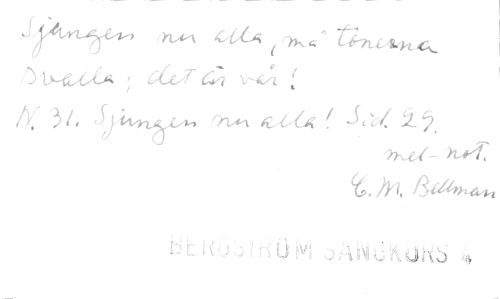 Sjungen nu alla, må tonerna
svalla; det är vår!
N. 31. Sjungen nu alla! Sid. 29.
mel-not.
C. M. Bellman
BERGSTRÖM SÅNGKURS 4